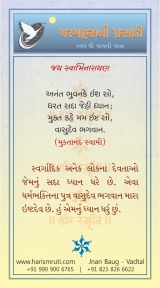 પરબ્રહ્મની પ્રસાદી
જય સ્વામિનારાયણ
અનંત ભુવનકે ઈશ સો,
ધરત સદા જેહી ધ્યાન;
મુક્ત કહું મમ ઈશ સો,
વાસુદેવ ભગવાન.
(મુક્તાનંદ સ્વામી)
સ્વર્ગાદિક અનેક લોકના દેવતાઓ
જેમનું સદા ધ્યાન ધરે છે. એવા
ધર્મભક્તિના પુત્ર વાસુદેવ ભગવાન મારા
ઇષ્ટદેવ છે. હું એમનું ધ્યાન ધરું છું.
www.harismruti.com Jnan Baug - Vadtal
+91 990 900 6765 | +91 823 826 6622